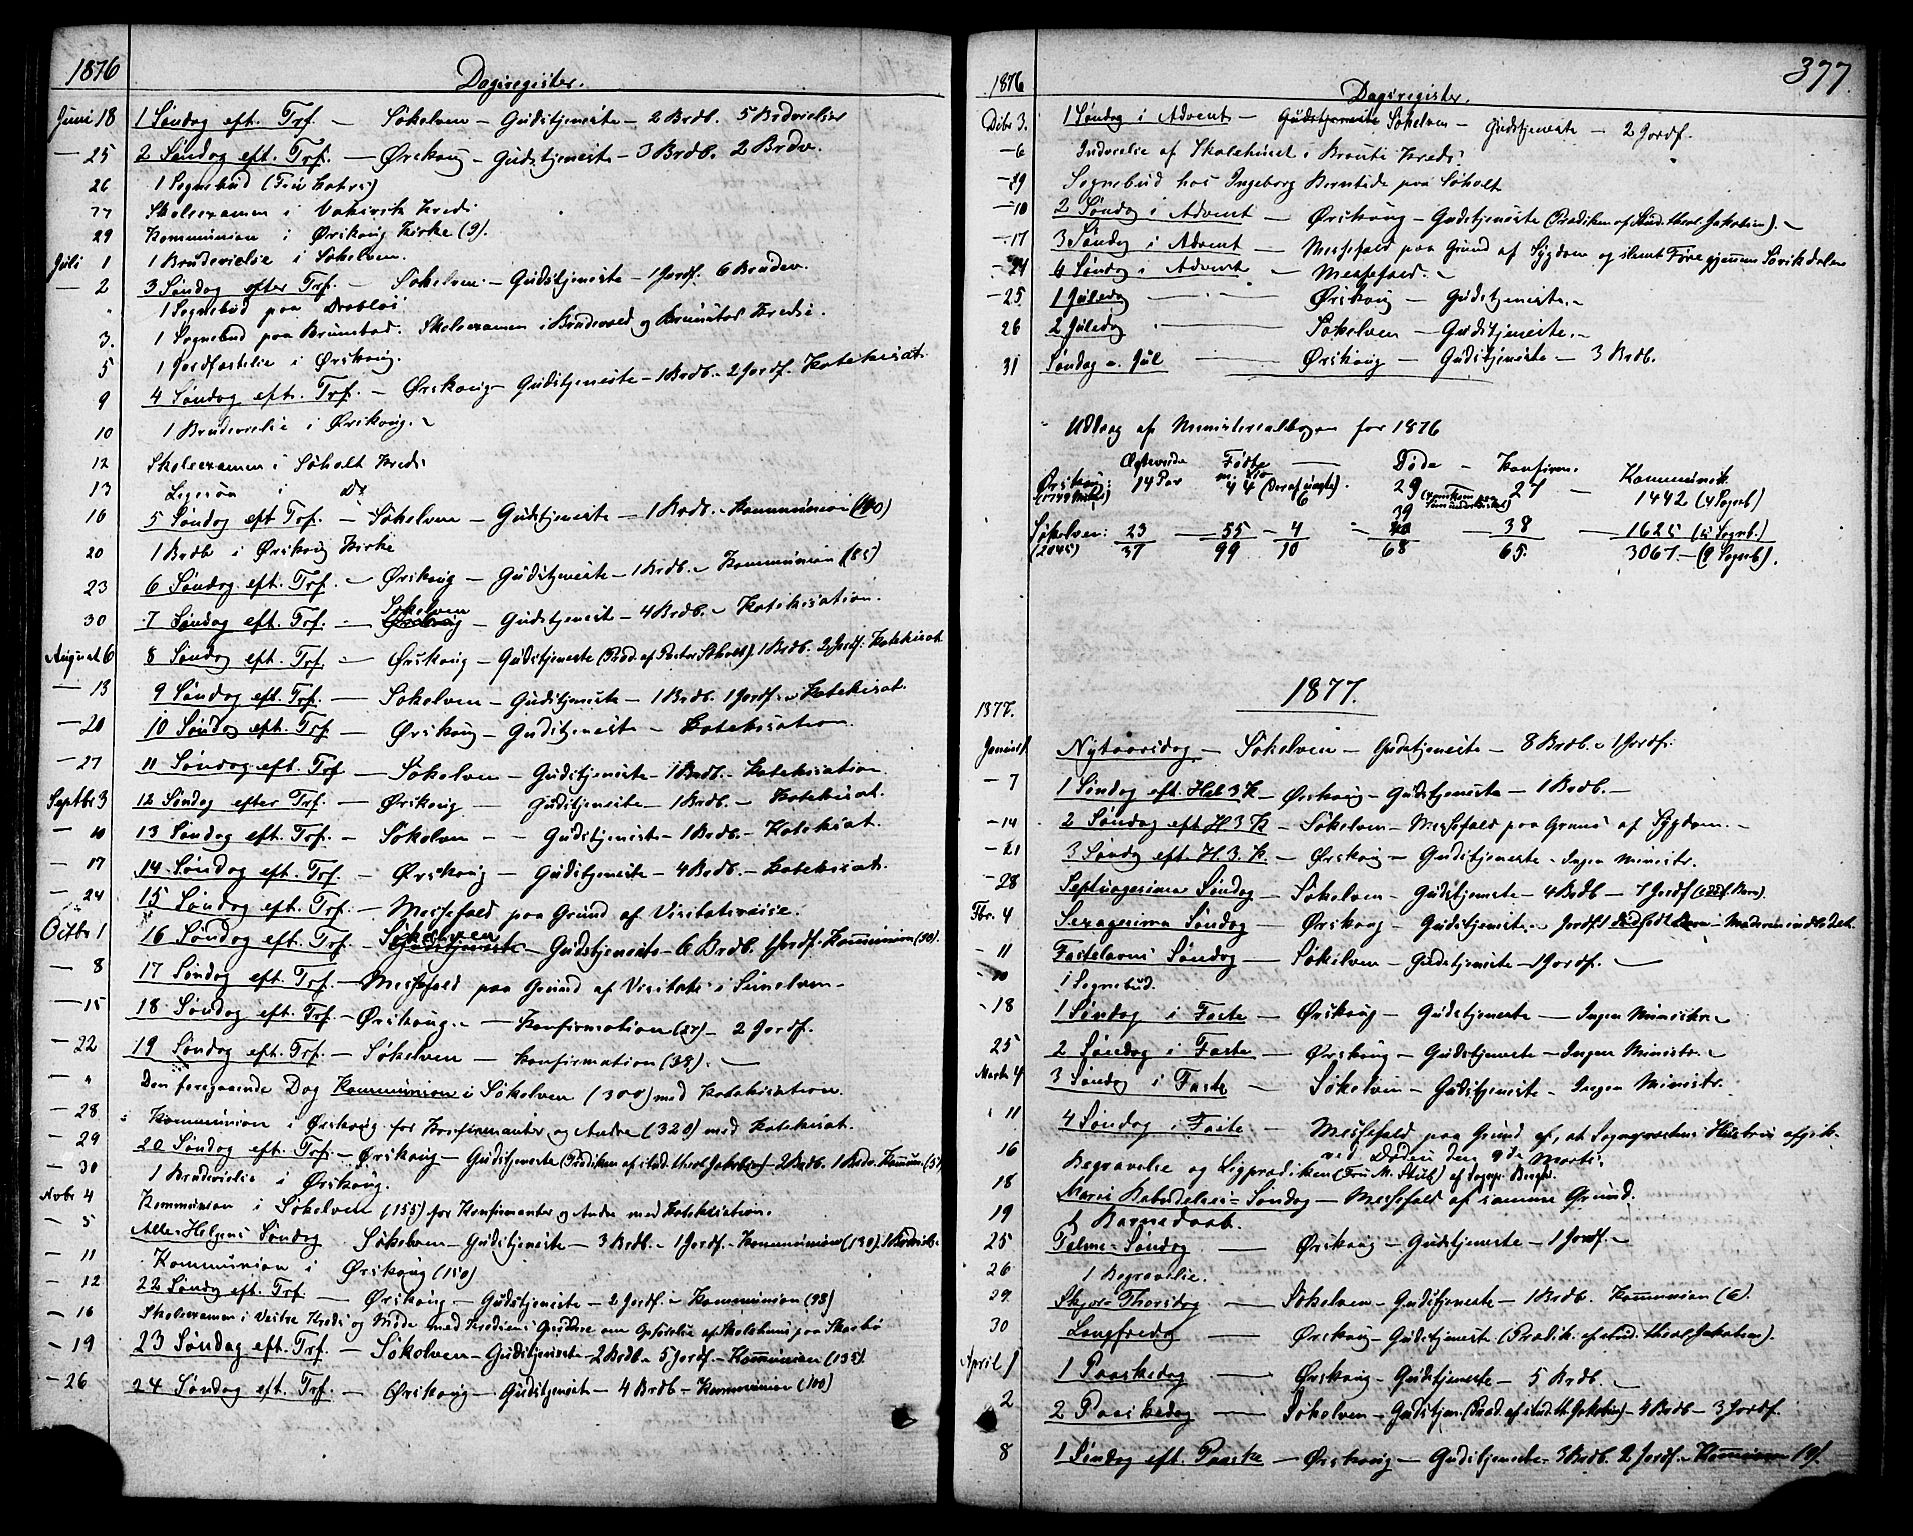 1876
Dagsregister.
Juni 18 1 Søndag eft. Trf. — Søkelven — Gudstjeneste — 2 Brdb. 5 Brdvielser
— 25 2 Søndag eft. Trf. — Ørskoug — Gudstjeneste — 3 Brdb. 2 Brdv.
26 1 Sognebud
27 Skoleexamen i Vatsvik Kreds
29 Kommunion i Ørskoug Kirke (9).
Juli 1 1 Brudevielse i Søkelven.
— 2 3 Søndag efter Trf. — Søkelven — Gudstjeneste — 1 Jordf. 6 Brudev.
" 1 Sognebud paa
3. 1 Sognebud paa Brunstad. Skoleexamen i Brudevold og Brunstad Kredse.
5 1 Jordfæstelse i Ørskoug.
9 4 Søndag eft. Trf. — Ørskoug — Gudstjeneste — 1 Brdb. — 2 Jordf. Katekisat.
10 1 Brudevielse i Ørskoug. —
12 Skoleexamen i Søholt Kreds
13 i Do
16 5 Søndag eft Trf. — Søkelven — Gudstjeneste — 1 Brdb. — Kommunion (100)
20 1 Brdb i Ørskoug Kirke
23 6 Søndag eft. Trf. — Ørskoug — Gudstjeneste — 1 Brdb. — Kommunion (85)
30 7 Søndag eft. Trf. — Søkelven — Gudstjeneste — 4 Brdb. — Katekisation.
August 6 8 Søndag eft. Trf. — Ørskoug — Gudstjeneste (Præd. af Pastor ) 1 Brdb. 2 Jordf. Katekisat
— 13 9 Søndag eft. Trf. — Søkelven — Gudstjeneste — 1 Brdb. 1 Jordf. — Katekisat.
— 20 10 Søndag eft. Trf — Ørskoug — Gudstjeneste — Katekisation.
— 27 11 Søndag eft. Trf — Søkelven — Gudstjeneste — 1 Brdb. — Katekisation
Septbr 3 12 Søndag efter Trf. — Ørskoug — Gudstjeneste — 1 Brdb. — Katekisat.
— 10 13 Søndag eft. Trf. — Søkelven — — Gudstjeneste — 1 Brdb. — Katekisat.
— 17 14 Søndag eft. Trf. — Ørskoug — Gudstjeneste — 4 Brdb. — Katekisat.
— 24 15 Søndag eft. Trf. — Messefald paa Grund af Visitatsreise.
Octbr 1 16 Søndag eft. Trf. — Søkelven — Gudstjeneste — 6 Brdb. 1 Jordf. Kommunion (90).
— 8 17 Søndag eft. Trf. — Messefald paa Grund af Visitats i Sunelven —
— 15 18 Søndag eft. Trf. — Ørskoug. — Konfirmation (27) — 2 Jordf.
— 22 19 Søndag eft. Trf. — Søkelven — Konfirmation (38). —
— " Den foregaaende Dag Kommunion i Søkelven (300) med Katekisation.
— 28 Kommunion i Ørskoug for Konfirmanter og Andre (320) med Katekisat.
— 29 20 Søndag eft. Trf. — Ørskoug — Gudstjeneste (Prædiken af stud. theol. Jakobsen) — 2 Brdb. 1 Brdv. Kommun. (57)
— 30 1 Brudevielse i Ørskoug.
Novbr 4 Kommunion i Søkelven (155) for Konfirmanter og Andre med Katekisation.
— 5 Alle Helgens Søndag Søkelven — Gudstjeneste — 3 Brdb. — 1 Jordf. — Kommunion (130). 1 Brdvielse
— 11 Kommunion i Ørskoug (150)
— 12 22 Søndag eft. Trf. — Ørskoug — Gudstjeneste — 2 Jordf. — Kommunion (98)
— 16 Skoleexamen i Vestre Kreds og Møde med Kredsens om Opførelse af Skolehuus paa
— 19 23 Søndag eft. Trf. — Søkelven — Gudstjeneste — 2 Brdb. — 5 Jordf — Kommunion (135)
— 26 24 Søndag eft. Trf. — Ørskoug — Gudstjeneste — 4 Brdb — Kommunion (100)
377.
1876
Dagsregister.
Dcbr 3. 1 Søndag i Advent — Gudstjeneste Søkelven — Gudstjeneste — 2 Jordf.
— 6 Indvielse af Skolehuset i Kreds.
— 9 Sognebud hos Ingeborg paa Søholt
— 10 2 Søndag i Advent — Ørskoug — Gudstjeneste (Prædiken af Stud. theol. Jakobsen). —
— 17 3 Søndag i Advent — Messefald paa Grund af Sygdom og slemt Føre gjennem
— 24 4 Søndag i Advent — Messefald. —
— 25 1 Juledag — Ørskoug — Gudstjeneste. —
26 2 Juledag — Søkelven — Gudstjeneste. —
31 Søndag m. Jul — Ørskoug — Gudstjeneste — 3 Brdb.
Uddrag af Ministerialbogen for 1876
Ægteviede Fødte — Døde — Konfirm. Kommunik.
Ørskoug: 14 Par 44 (Deraf uægte) 6 29 27 — 1442 (4 Sognb)
Søkelven: 23 — 55 — 4 — 39 — 38 — 1625 (5 Sognb.)
(2045) 37 99 10 68 65 3067 — (9 Sognb).
1877.
1877.
Januar 1 Nytaarsdag — Søkelven — Gudstjeneste — 8 Brdb. — 1 Jordf.
— 7 1 Søndag eft. Hel 3 K — Ørskoug — Gudstjeneste — 1 Brdb. —
— 14 2 Søndag eft H 3 K — Søkelven — Messefald paa Grund af Sygdom. —
— 21 3 Søndag eft H. 3. K. — Ørskoug — Gudstjeneste — Ingen Ministr.
— 28 Septuagesima Søndag — Søkelven — Gudstjeneste — 4 Brdb — 1 Jordf (dødf. Barn).
Fbr. 4 Sexagesima Søndag — Ørskoug — Gudstjeneste — Jordf. 1 dødfødt Barn — Moderen indledet.
— 11 Fastelavns Søndag — Søkelven — Gudstjeneste — 1 Jordf. —
— 10 1 Sognebud.
— 18 1 Søndag i Faste — Ørskoug — Gudstjeneste — Ingen Ministr. —
25 2 Søndag i Faste — Ørskoug — Gudstjeneste — Ingen Ministr. —
Marts 4 3 Søndag i Faste — Søkelven — Gudstjeneste — Ingen Ministr.
" 11 4 Søndag i Faste — Messefald paa Grund af, at Sognepræstens Hustru afgik
ved Døden den 9de Marts.
16 Begravelse og Ligprædiken (Fru M. ) af Sognepr.
18 Marie Bebudelses-Søndag — Messefald af samme Grund.
19 1 Barnedaab.
25 Palme-Søndag — Ørskoug — Gudstjeneste — 1 Jordf. —
26 1 Begravelse.
29. Skjær-Thorsdag — Søkelven — Gudstjeneste — 1 Brdb. Kommunion (6).
30 Langfredag — Ørskoug — Gudstjeneste (Prædik. af stud. theol. Jakobsen).
April 1 1 Paaskedag — Ørskoug — Gudstjeneste — 5 Brdb. —
2 2 Paaskedag — Søkelven — Gudstjen. (Præd. af stud. th. Jakobsen) — 4 Brdb — 3 Jordf.
8 1 Søndag eft. Paaske — Ørskoug — Gudstjeneste — 3 Brdb. 2 Jordf. — Kommunion 19.